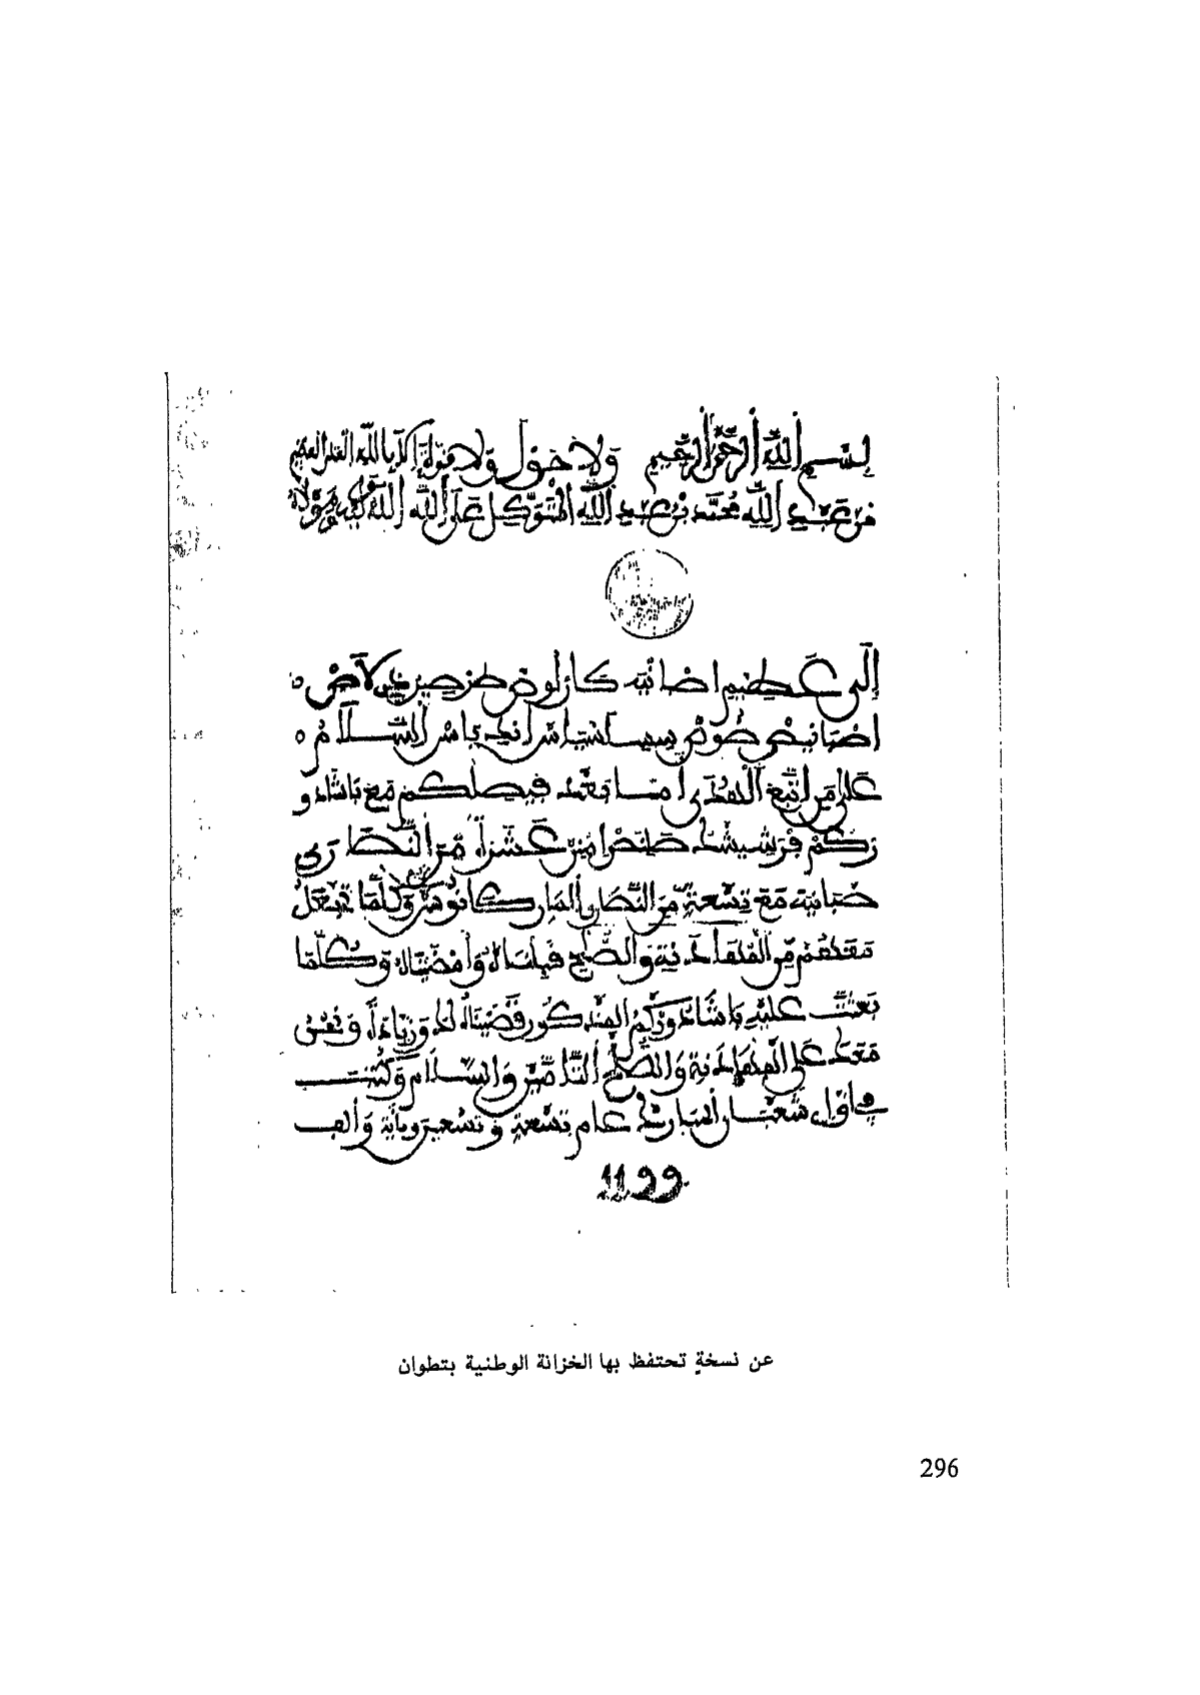 بسم الله الرحمن الرحيم ولا حول ولا قوة إلا بالله العلي العظيم
من عبد الله محمد بن عبد الله المتوكل على الله الله ومولاه
إلى عظيم اصبانيه كارلوص طرصير لاص
اصبانيص صوبر يس السلام
على من اتبع الهدى أما بعد فيصلكم مع باشادو
ركم فرنسيشك عشرة من النصارى
مع تسعة من النصارى كانوا وكلما
معكم من المهادنة والصلح قبلناه وأمضيناه وكلما
بعثت عليه باشادوركم المذكور قضيناه له وزيادة ونحن
معك على المهادنة والصلح التام والسلام وكتب
في أول شعبان المبارك عام تسعة وتسعين ومائة وألف
1199
عن نسخةٍ تحتفظ بها الخزانة الوطنية بتطوان
296